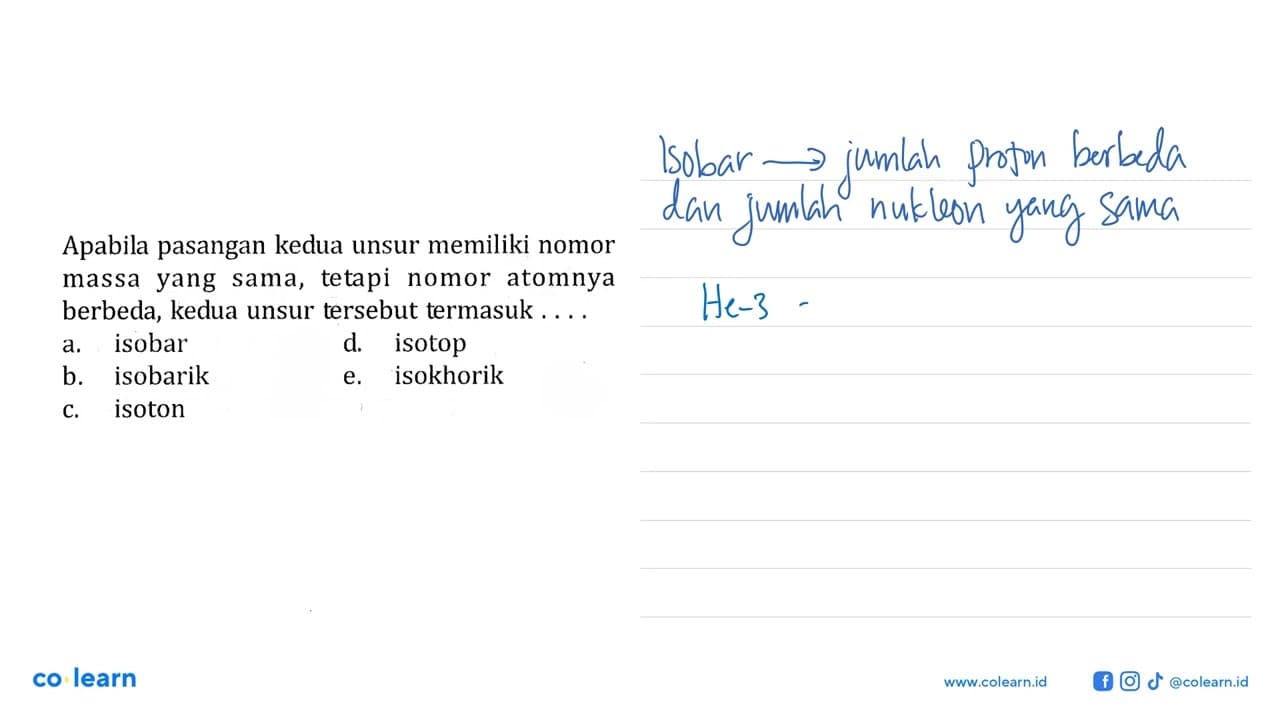 Apabila pasangan kedua unsur memiliki nomor
massa yang sama, tetapi nomor atomnya
berbeda, kedua unsur tersebut termasuk . . . .
a. isobar d. isotop
b. isobarik e. isokhorik
c. isoton
Isobar → jumlah proton berbeda
dan jumlah nukleon yang sama
He-3 -
co learn
www.colearn.id @colearn.id